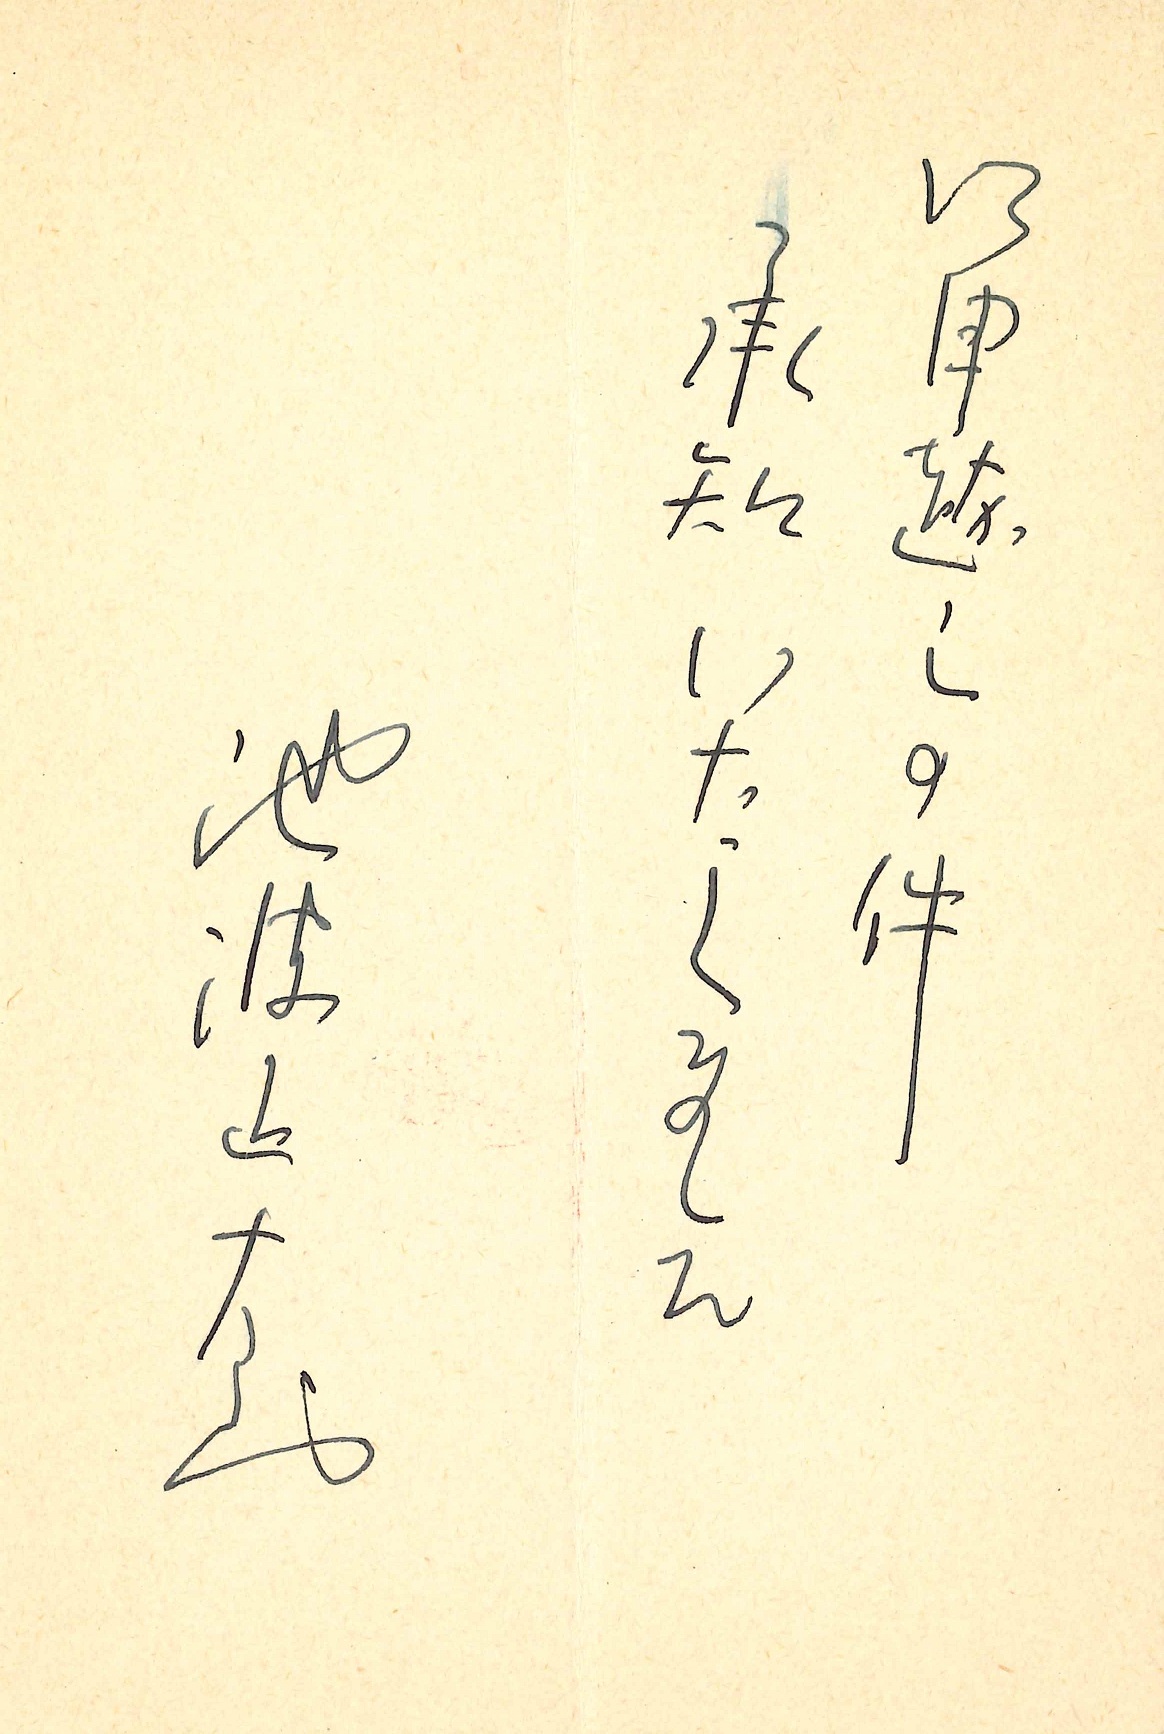 御申越しの件
承知いたしました
池波正太郎